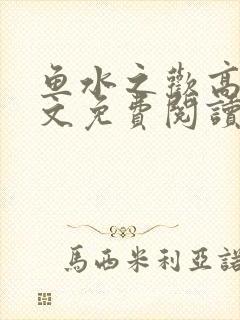 鱼水之歡高
文免費閱讀
馬西米利亞諾